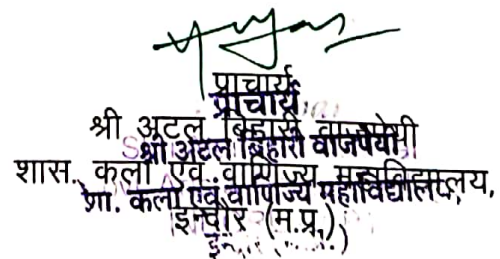 प्राचार्य
प्राचार्य
श्री अटल बिहारी वाजपेयी
श्री अटल बिहारी वाजपेयी
शास. कला एवं वाणिज्य महाविद्यालय,
शा. कला एवं वाणिज्य महाविद्यालय,
इन्दौर (म.प्र.)